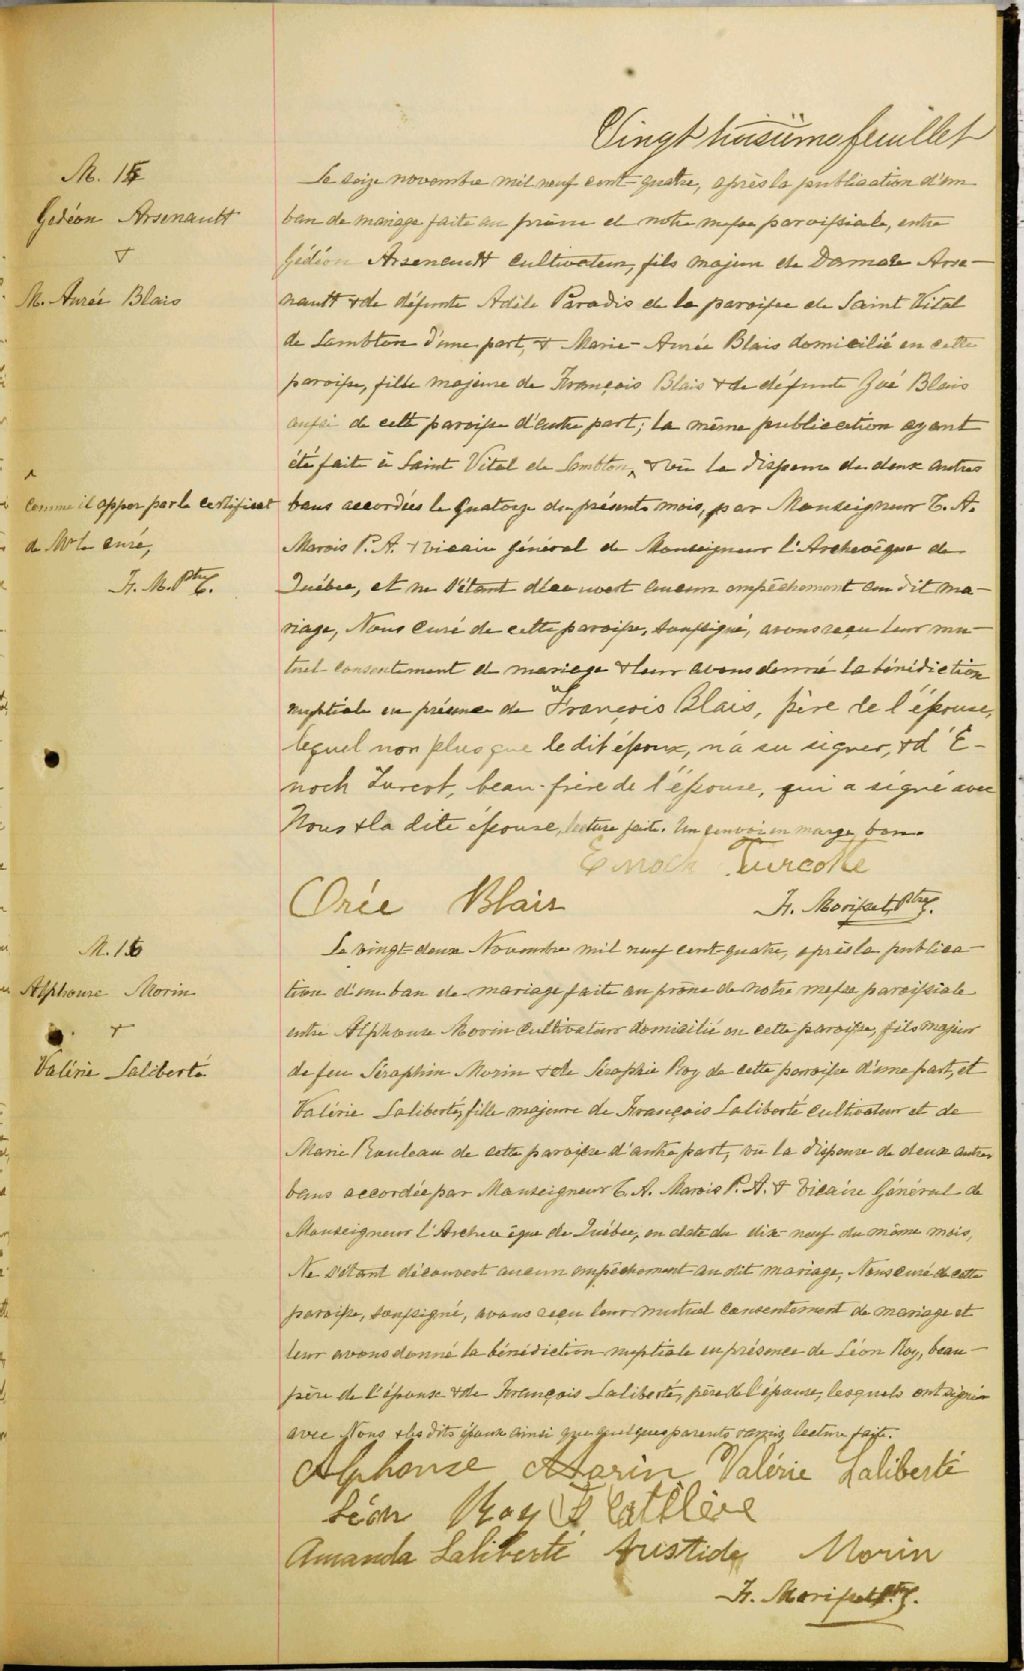 Vingt troisième feuillet
M. 15
Gédéon Arsenault
&
M. Aurée Blais
Le seize novembre mil neuf cent quatre, après la publication d'un
ban de mariage faite au prône de notre messe paroissiale, entre
Gédéon Arsenault cultivateur, fils majeur de Damase Arse-
nault & de défunte Adèle Paradis de la paroisse de Saint Vital
de Lambton d'une part, & Marie-Aurée Blais domicilié en cette
paroisse, fille majeure de François Blais & de défunte Zoé Blais
aussi de cette paroisse d'autre part; la même publication ayant
été faite à Saint Vital de Lambton, & vu la dispense de deux autres
bans accordées le quatorze du présent mois, par Monseigneur C. A.
Marois P. A. & vicaire général de Monseigneur l'Archevêque de
Québec, et ne s'étant découvert aucun empêchement au dit ma-
riage, Nous curé de cette paroisse, soussigné, avons reçu leur mu-
tuel consentement de mariage & leur avons donné la bénédiction
nuptiale en présence de François Blais, père de l'épouse,
lequel non plus que le dit époux, n'a su signer, & d'É-
noch Turcot, beau-frère de l'épouse, qui a signé avec
Nous & la dite épouse, lecture faite. Un renvoi en marge bon.
^
comme il appert par le certificat
de Mr le curé,
F. M. Ptre
Enoch Turcotte
Orée Blais
F. Morisset, Ptre.
M. 16
Alphonse Morin
&
Valérie Laliberté
Le vingt-deux Novembre mil neuf cent-quatre, après la publica-
tion d'un ban de mariage faite au prône de notre messe paroissiale
entre Alphonse Morin cultivateur domicilié en cette paroisse, fils majeur
de feu Séraphin Morin & de Séraphie Roy de cette paroisse d'une part, et
Valérie Laliberté, fille majeure de François Laliberté cultivateur et de
Marie Rouleau de cette paroisse d'autre part, vu la dispense de deux autres
bans accordée par Monseigneur C. A. Marois P. A. & Vicaire Général de
Monseigneur l'Archevêque de Québec, en date du dix-neuf du même mois,
Ne s'étant découvert aucun empêchement au dit mariage, Nous curé de cette
paroisse, soussigné, avons reçu leur mutuel consentement de mariage et
leur avons donné la bénédiction nuptiale en présence de Léon Roy, beau-
père de l'époux & de François Laliberté, père de l'épouse, lesquels ont signé
avec Nous & les dits époux ainsi que quelques parents & amis, lecture faite.
Alphonse Morin Valérie Laliberté
Léon Roy
Amanda Laliberté Aristide Morin
F. Morisset Ptre.